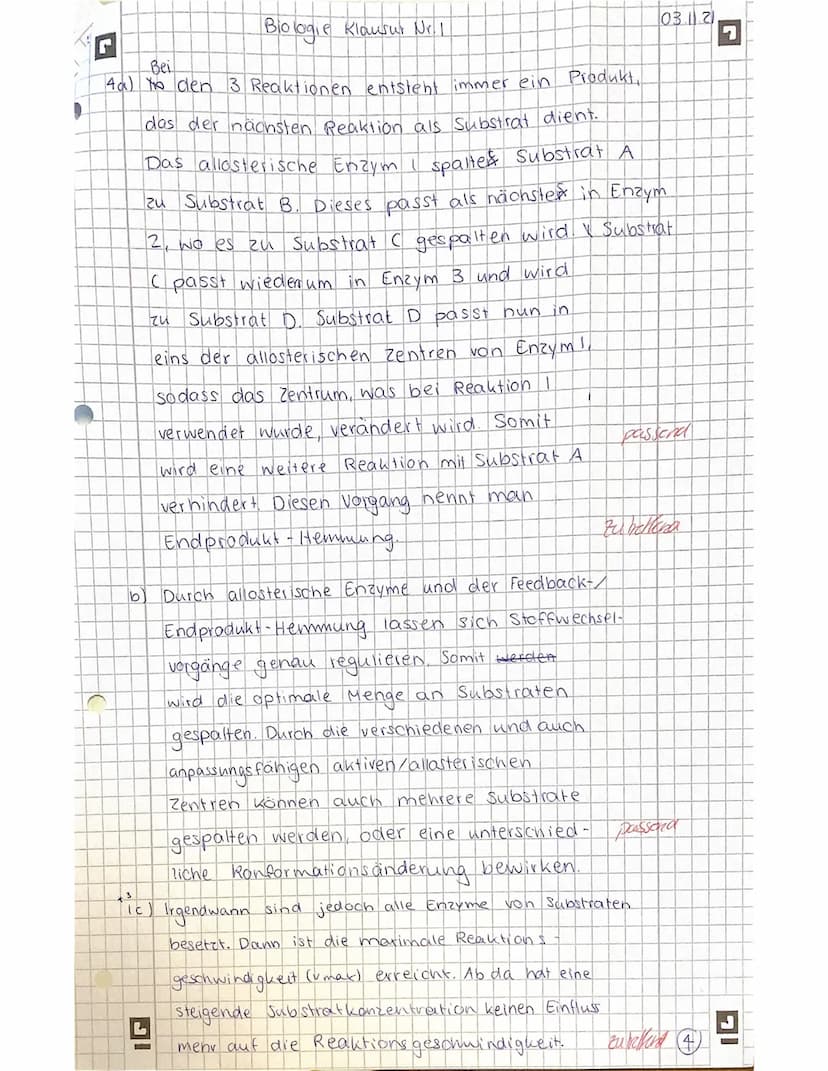 Biologie Klausur Nr.1
03.11.21
Bei
4a) den 3 Reaktionen entsteht immer ein Produkt,
das der nächsten Reaktion als Substrat dient.
Das allosterische Enzym 1 spaltet Substrat A
zu Substrat B. Dieses passt als nächstes in Enzym
2, wo es zu Substrat C gespalten wird. Substrat
C passt wiederum in Enzym 3 und wird
zu Substrat D. Substrat D passt nun in
eins der allosterischen Zentren von Enzym 1,
sodass das Zentrum, was bei Reaktion 1
verwendet wurde, verändert wird. Somit
passend
wird eine weitere Reaktion mit Substrat A
verhindert. Diesen Vorgang nennt man
Endprodukt-Hemmung.
zutreffend
b) Durch allosterische Enzyme und der Feedback-/
Endprodukt-Hemmung lassen sich Stoffwechsel-
vorgänge genau regulieren. Somit werden
wird die optimale Menge an Substraten
gespalten. Durch die verschiedenen und auch
anpassungsfähigen aktiven/allosterischen
Zentren können auch mehrere Substrate
gespalten werden, oder eine unterschied-
passend
liche Konformationsänderung bewirken.
*3
1c) Irgendwann sind jedoch alle Enzyme von Substraten
besetzt. Dann ist die maximale Reaktions-
geschwindigkeit (vmax) erreicht. Ab da hat eine
steigende Substratkonzentration keinen Einfluss
mehr auf die Reaktionsgeschwindigkeit.
zutreffend 4